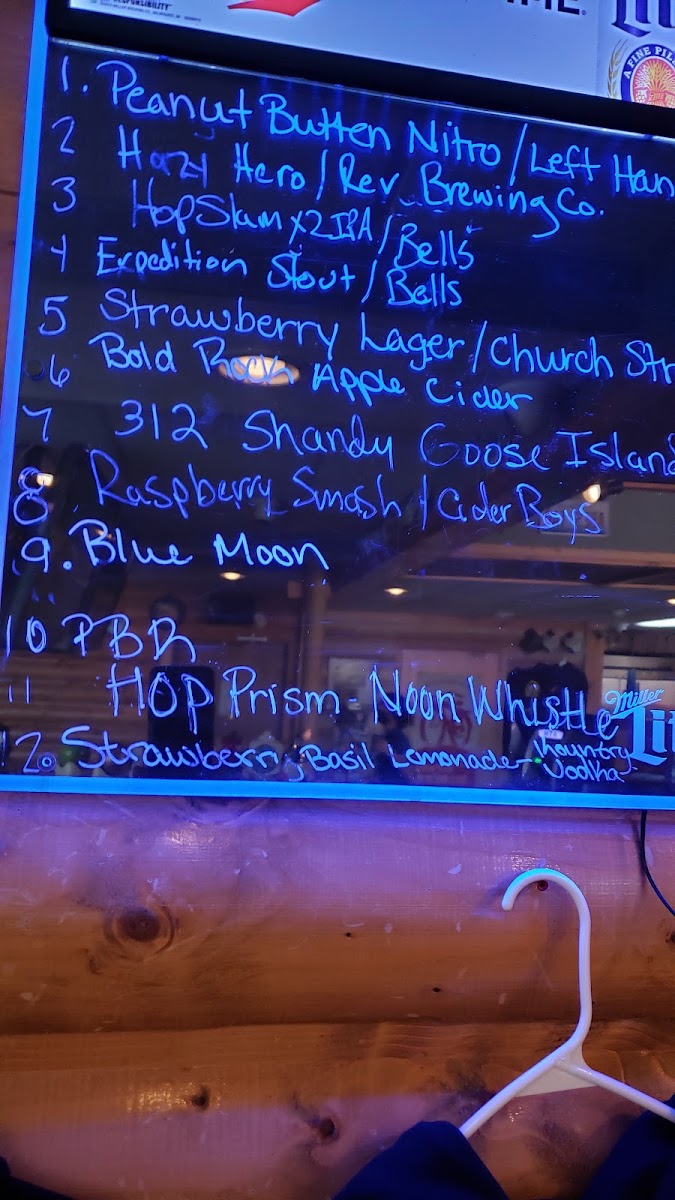 RESPONSIBILITY
A FINE PILS
1. Peanut Butter Nitro / Left Han
2 Hazy Hero / Rev. Brewing Co.
3 HopSlam x2 IPA / Bells
4 Expedition Stout / Bells
5 Strawberry Lager / Church Str
6 Bold Rock Apple Cider
7 312 Shandy Goose Island
8. Raspberry Smash / Cider Boys
9. Blue Moon
10 PBR
11 HOP Prism Noon Whistle
Miller
Lit
12. Strawberry Basil Lemonade - Vodka